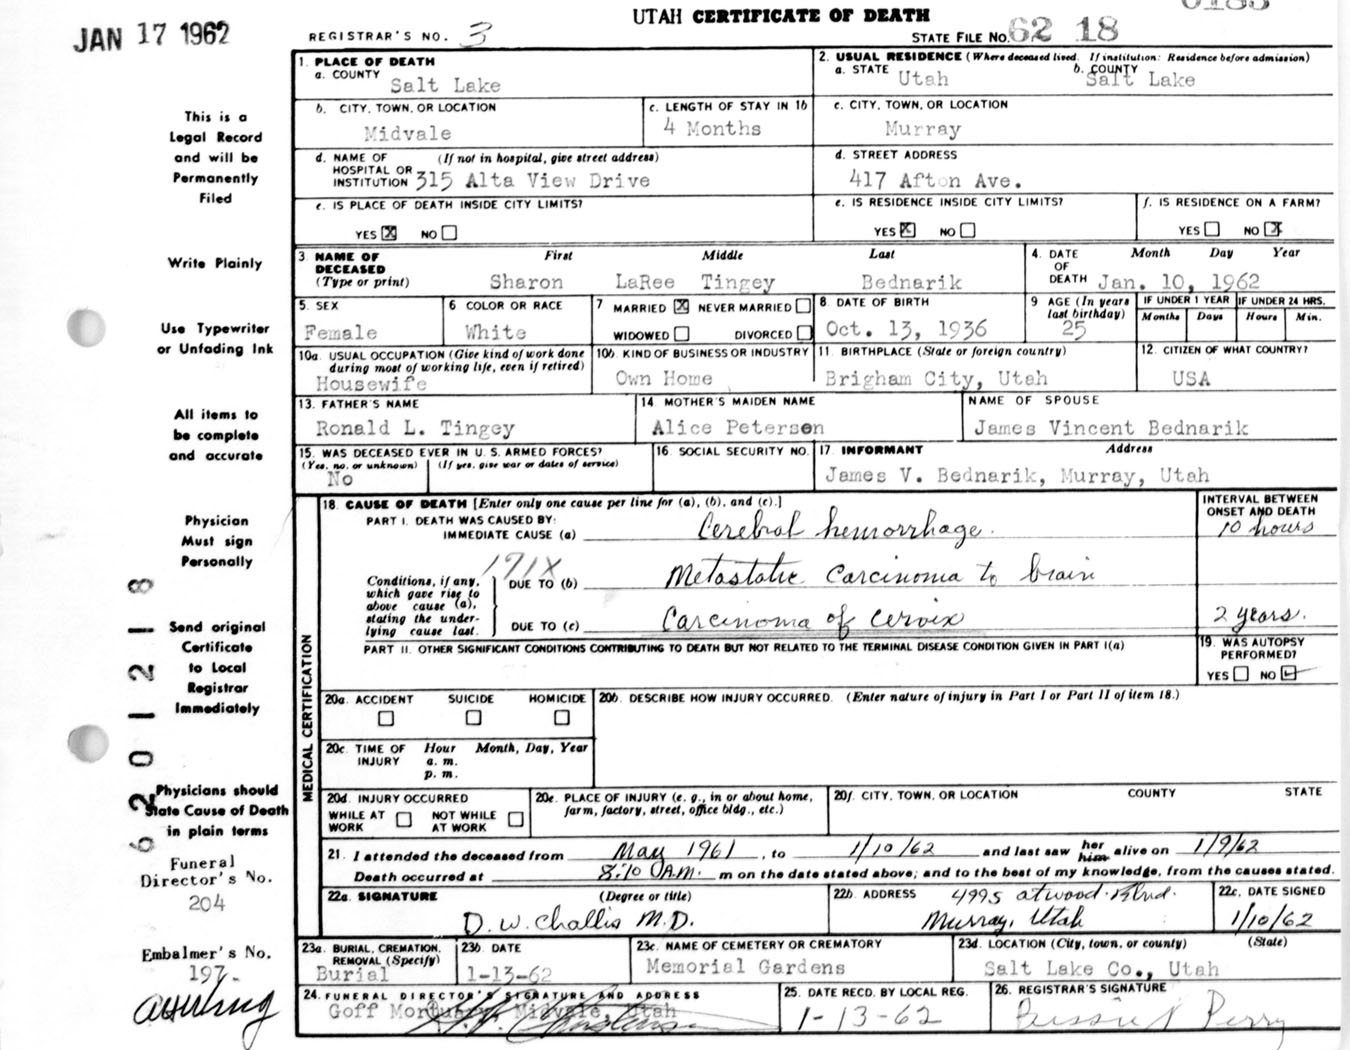 UTAH CERTIFICATE OF DEATH
JAN 17 1962
REGISTRAR'S NO. 3
STATE FILE NO. 62 18
1. PLACE OF DEATH
a. COUNTY
Salt Lake
2. USUAL RESIDENCE (Where deceased lived. If institution: Residence before admission)
a. STATE Utah b. COUNTY Salt Lake
b. CITY, TOWN, OR LOCATION
Midvale
c. LENGTH OF STAY IN 1b
4 Months
c. CITY, TOWN, OR LOCATION
Murray
d. NAME OF HOSPITAL OR INSTITUTION (If not in hospital, give street address)
315 Alta View Drive
d. STREET ADDRESS
417 Afton Ave.
e. IS PLACE OF DEATH INSIDE CITY LIMITS?
YES X NO
e. IS RESIDENCE INSIDE CITY LIMITS?
YES X NO
f. IS RESIDENCE ON A FARM?
YES NO X
3. NAME OF DECEASED (Type or print)
First Middle Last
Sharon LaRee Tingey Bednarik
4. DATE OF DEATH Month Day Year
Jan. 10, 1962
5. SEX
Female
6 COLOR OR RACE
White
7 MARRIED X NEVER MARRIED
WIDOWED DIVORCED
8 DATE OF BIRTH
Oct. 13, 1936
9 AGE (In years last birthday)
25
IF UNDER 1 YEAR IF UNDER 24 HRS.
Months Days Hours Min.
10a. USUAL OCCUPATION (Give kind of work done during most of working life, even if retired)
Housewife
10b. KIND OF BUSINESS OR INDUSTRY
Own Home
11. BIRTHPLACE (State or foreign country)
Brigham City, Utah
12. CITIZEN OF WHAT COUNTRY?
USA
13. FATHER'S NAME
Ronald L. Tingey
14. MOTHER'S MAIDEN NAME
Alice Peterson
NAME OF SPOUSE
James Vincent Bednarik
15. WAS DECEASED EVER IN U. S. ARMED FORCES?
(Yes, no, or unknown) (If yes, give war or dates of service)
No
16. SOCIAL SECURITY NO.
17. INFORMANT Address
James V. Bednarik, Murray, Utah
MEDICAL CERTIFICATION
18. CAUSE OF DEATH [Enter only one cause per line for (a), (b), and (c).]
INTERVAL BETWEEN ONSET AND DEATH
PART I. DEATH WAS CAUSED BY:
IMMEDIATE CAUSE (a) Cerebral hemorrhage. 10 hours
171X
Conditions, if any, which gave rise to above cause (a), stating the underlying cause last.
DUE TO (b) Metastatic carcinoma to brain
DUE TO (c) Carcinoma of cervix 2 years.
PART II. OTHER SIGNIFICANT CONDITIONS CONTRIBUTING TO DEATH BUT NOT RELATED TO THE TERMINAL DISEASE CONDITION GIVEN IN PART I(a)
19. WAS AUTOPSY PERFORMED?
YES NO
20a. ACCIDENT SUICIDE HOMICIDE
20b. DESCRIBE HOW INJURY OCCURRED. (Enter nature of injury in Part I or Part II of item 18.)
20c. TIME OF INJURY Hour Month, Day, Year
a. m.
p. m.
20d. INJURY OCCURRED
WHILE AT WORK NOT WHILE AT WORK
20e. PLACE OF INJURY (e. g., in or about home, farm, factory, street, office bldg., etc.)
20f. CITY, TOWN, OR LOCATION COUNTY STATE
21. I attended the deceased from May 1961, to 1/10/62 and last saw her him alive on 1/9/62
Death occurred at 8:10 A.M. m on the date stated above; and to the best of my knowledge, from the causes stated.
22a. SIGNATURE (Degree or title)
D. W. Challis M.D.
22b. ADDRESS 4995 Atwood Blvd.
Murray, Utah
22c. DATE SIGNED
1/10/62
23a. BURIAL, CREMATION, REMOVAL (Specify)
Burial
23b. DATE
1-13-62
23c. NAME OF CEMETERY OR CREMATORY
Memorial Gardens
23d. LOCATION (City, town, or county) (State)
Salt Lake Co., Utah
24. FUNERAL DIRECTOR'S SIGNATURE AND ADDRESS
Goff Mortuary, Midvale, Utah
25. DATE RECD. BY LOCAL REG.
1-13-62
26. REGISTRAR'S SIGNATURE
Perry
This is a
Legal Record
and will be
Permanently
Filed
Write Plainly
Use Typewriter
or Unfading Ink
All items to
be complete
and accurate
Physician
Must sign
Personally
Send original
Certificate
to Local
Registrar
Immediately
Physicians should
State Cause of Death
in plain terms
Funeral
Director's No.
204
Embalmer's No.
197
62 01 21 8